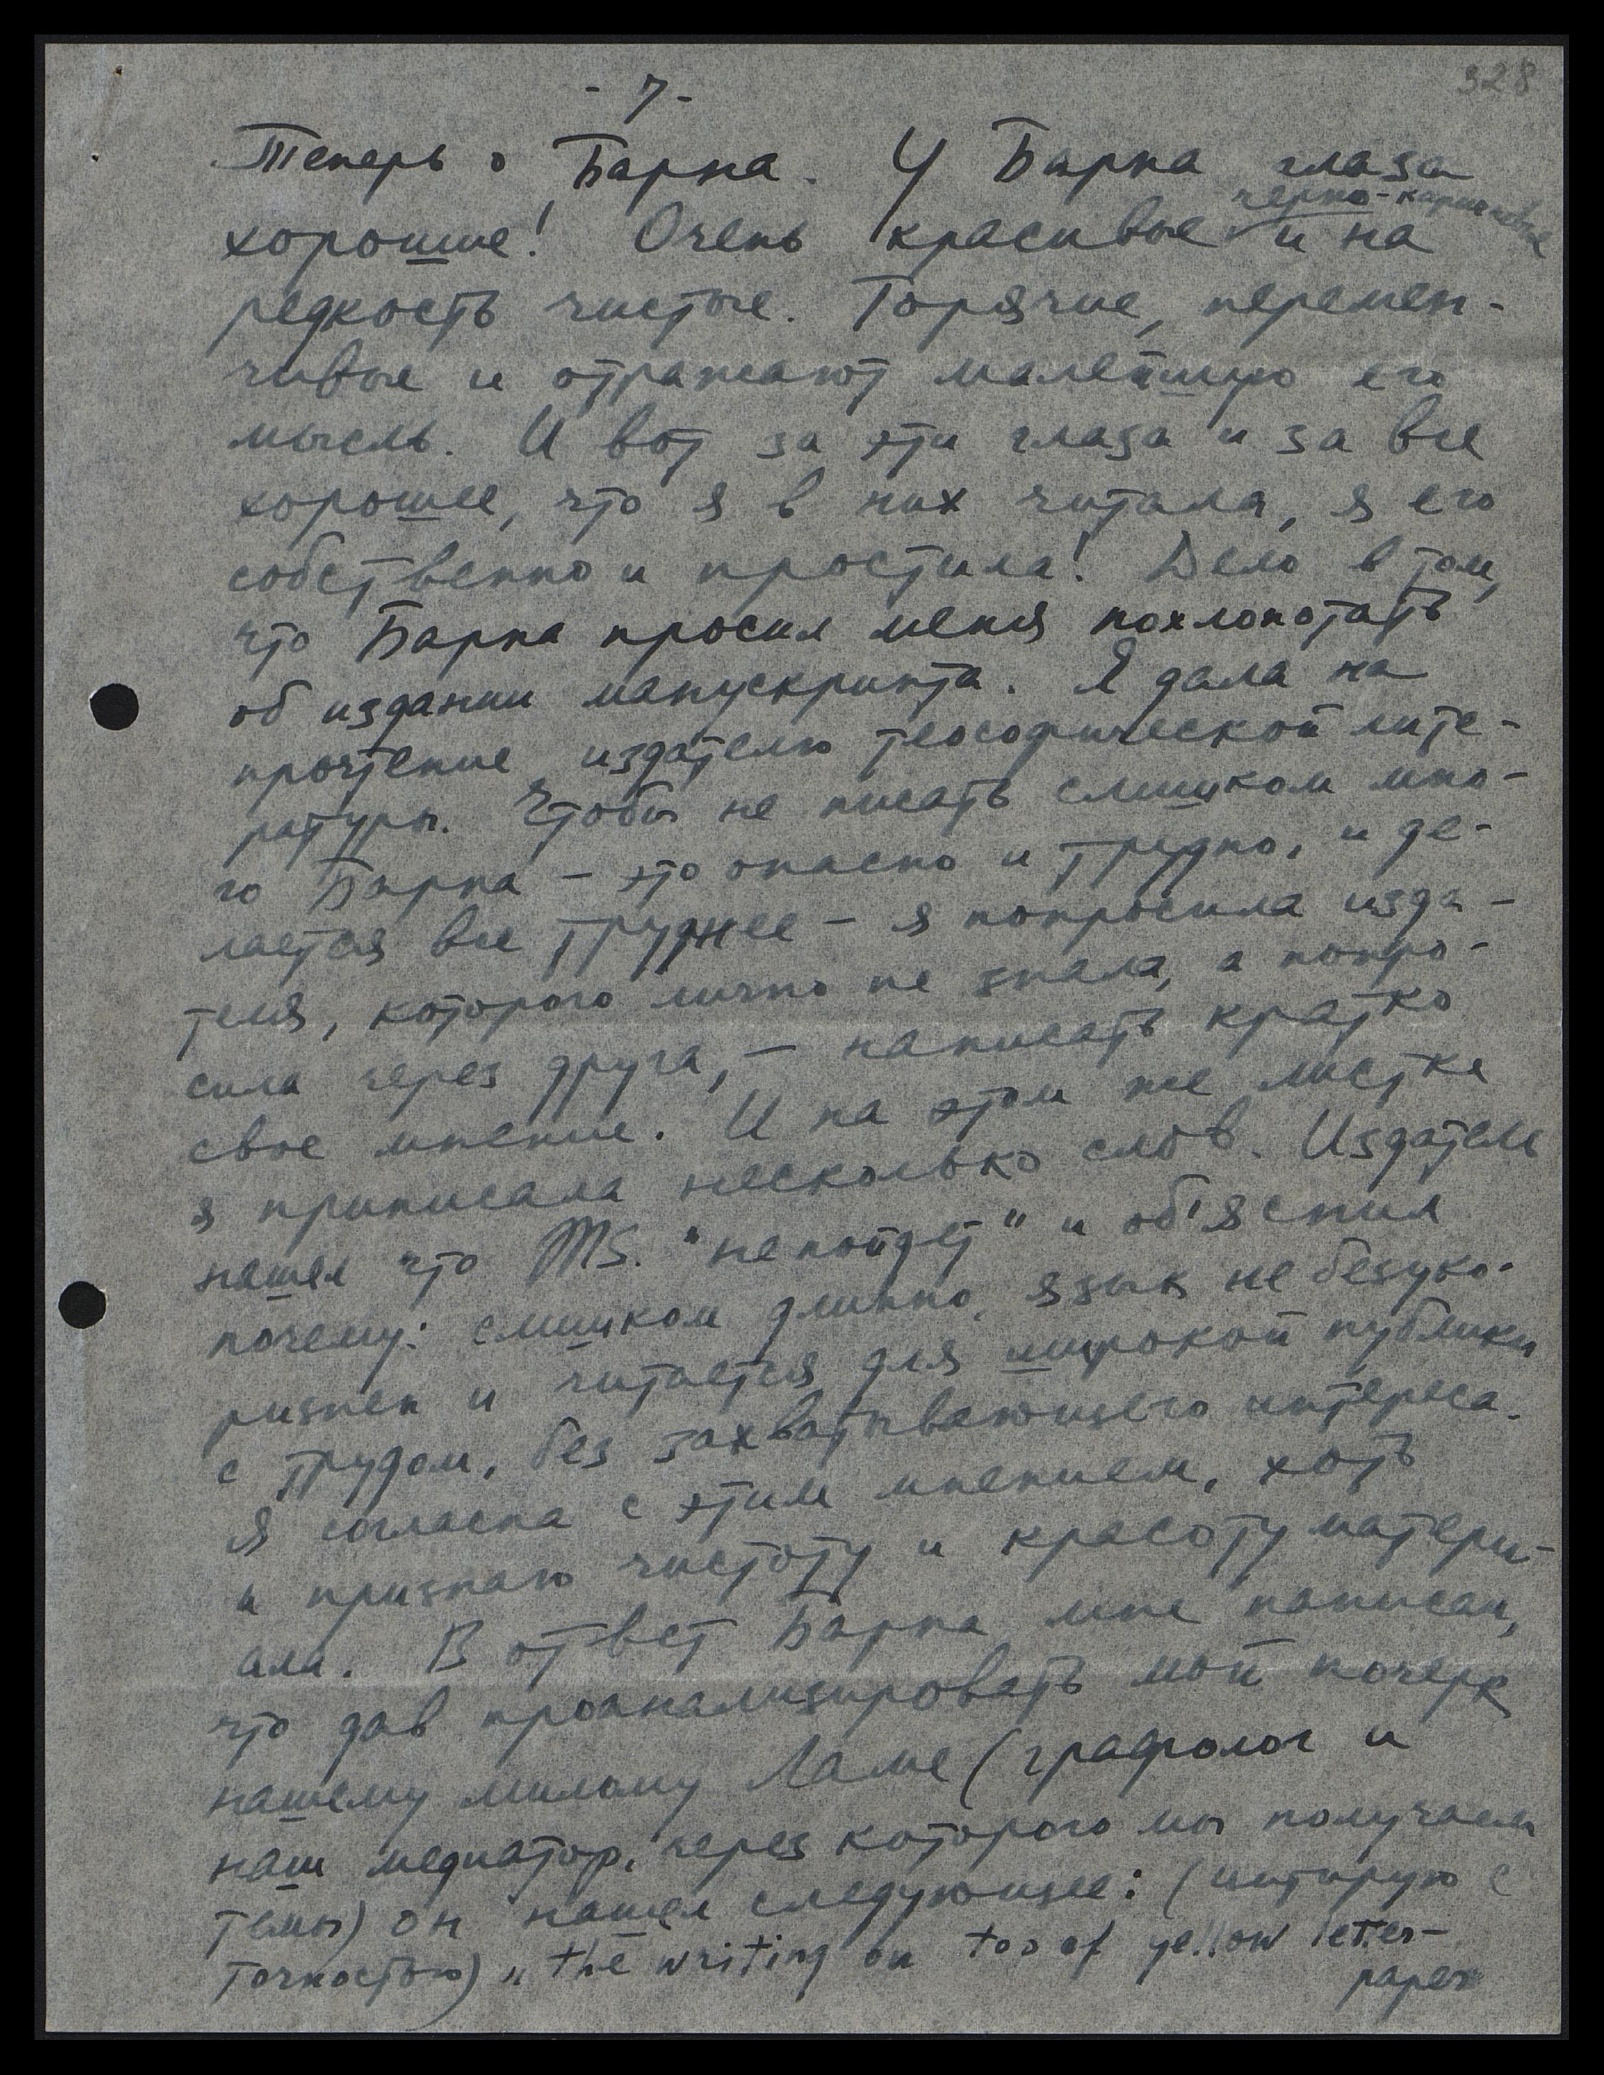 328
- 7 -
Теперь о Барпа. У Барпа глаза
черно-карие
хорошие! Очень красивые и на
редкость чистые. Горячие, перемен-
чивые и отражают малейшую его
мысль. И вот за эти глаза и за все
хорошее, что я в них читала, я его
собственно и простила! Дело в том,
что Барпа просил меня похлопотать
об издании манускрипта. Я дала на
прочтение издателю теософической лите-
ратуры. Чтобы не писать слишком мно-
го Барпа – это опасно и трудно, и де-
лается все труднее – я попросила изда-
теля, которого лично не знала, а попро-
сила через друга, – написать кратко
свое мнение. И на этом же листке
я приписала несколько слов. Издатель
нашел что MS. "не пойдет" и об'яснил
почему: слишком длинно, язык не безуко-
ризнен и читается для широкой публики
с трудом, без захватывающего интереса.
Я согласна с этим мнением, хоть
и признаю чистоту и красоту матери-
ала. В ответ Барпа мне написал,
что дав проанализировать мой почерк
нашему милому Ламе (графолог и
наш медиатор, через которого мы получаем
темы) он нашел следующее: (цитирую с
точностью) „the writing on top of yellow letter-
paper